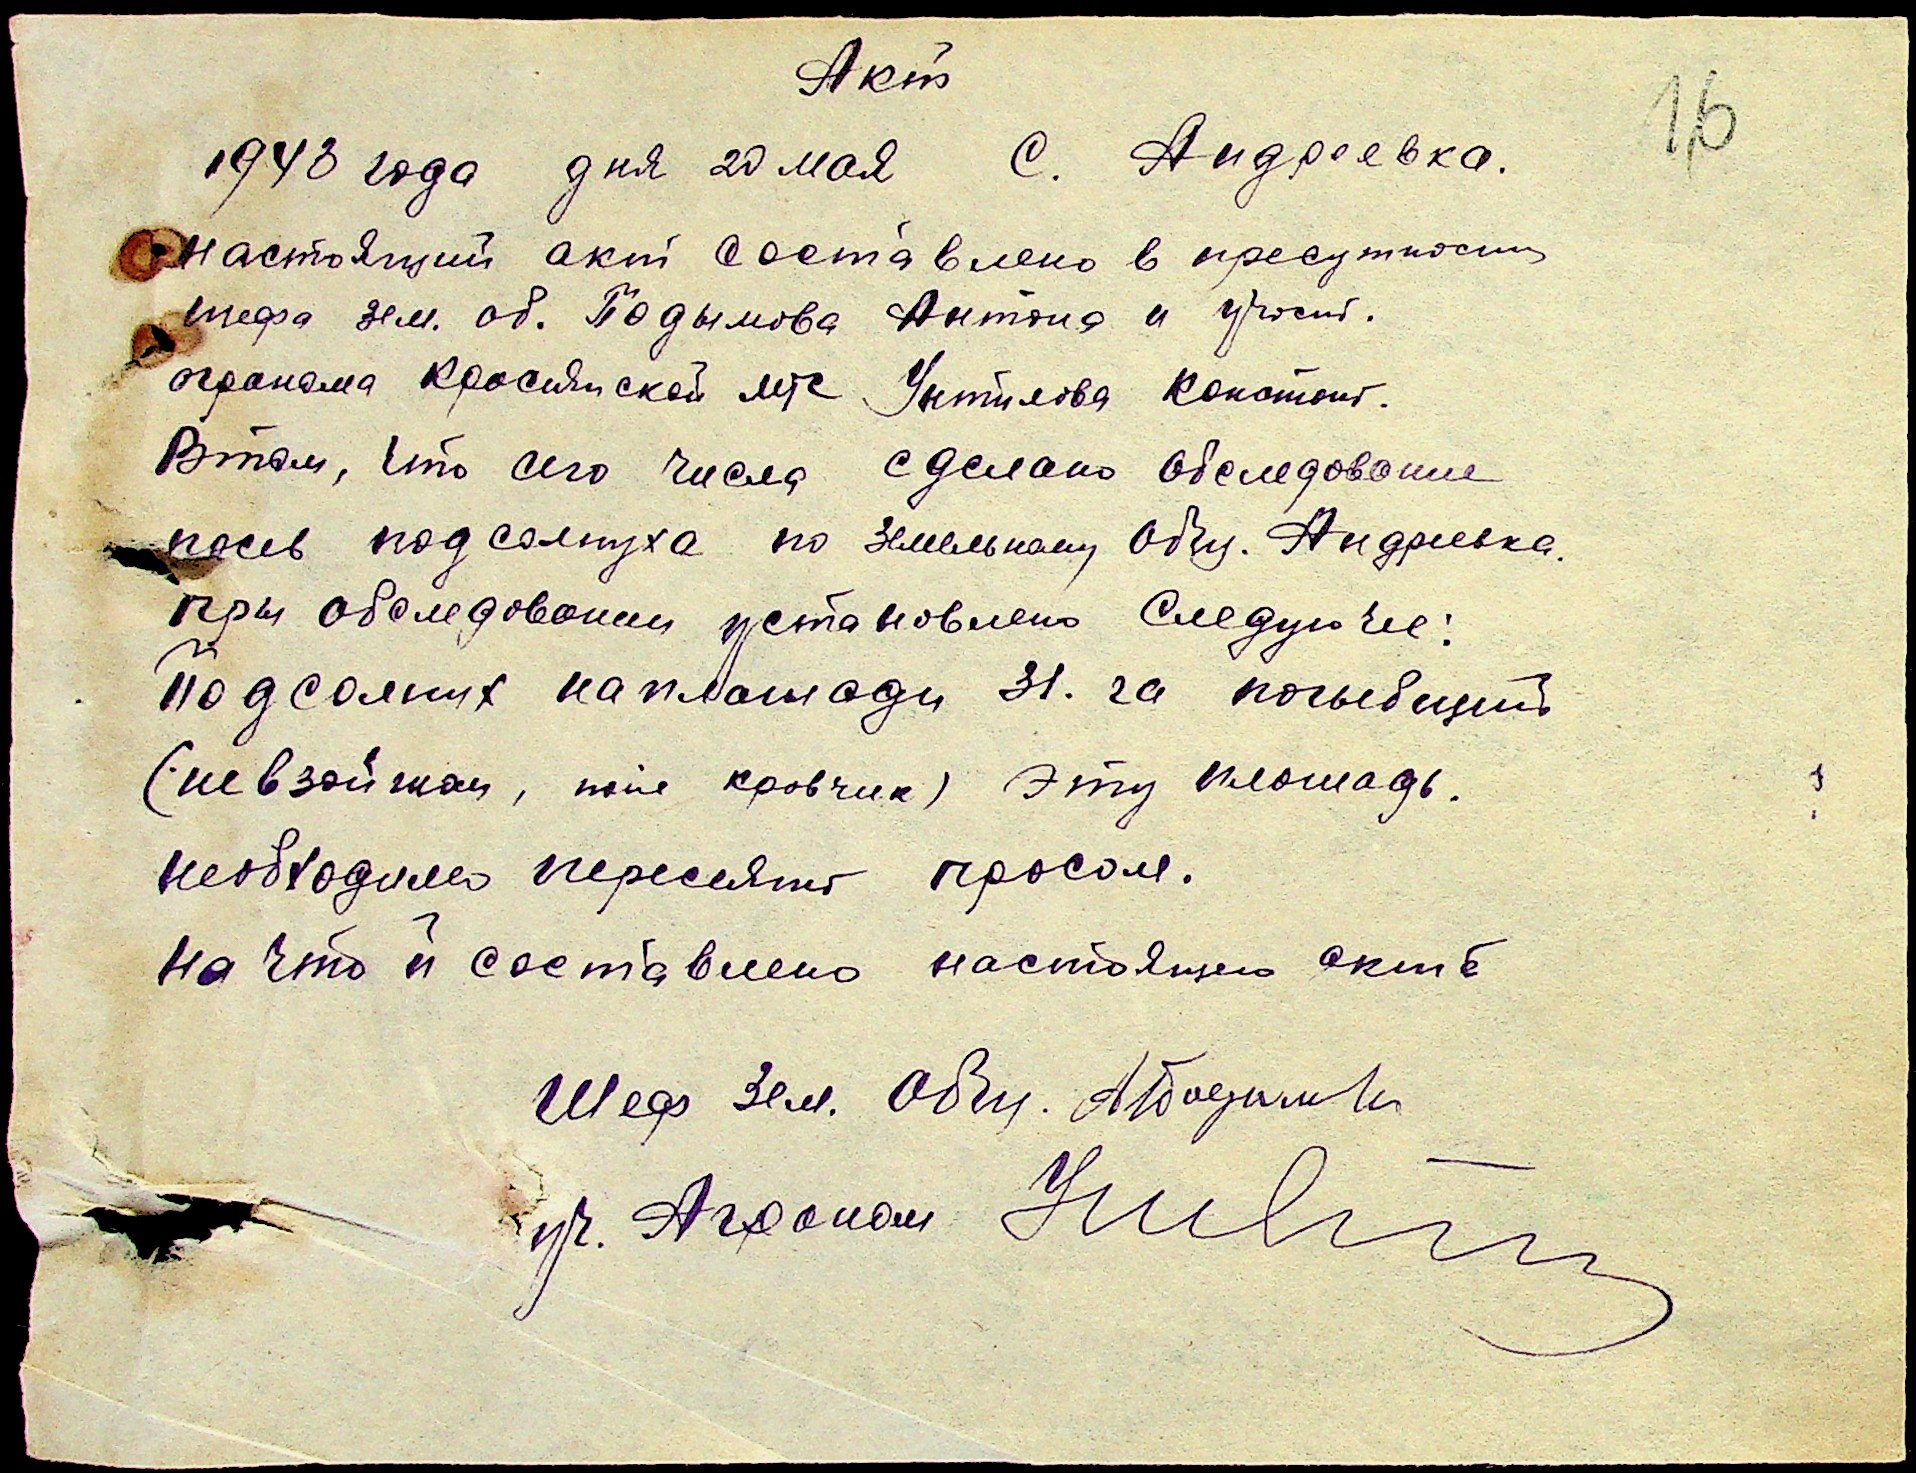 Акт
16
1943 года дня 20 мая С. Андреевка.
настоящий акт составлено в
шефа зем. об. Подымова Антона и участ.
агранома мтс Унтилова Констант.
В том, что сего числа сделано обследование
посев подсолнуха по земельному Общ. Андреевка.
при обследовании установлено следующее:
Подсолнух на площади 31. га погыбший
(не взойшов, кровчик) Эту площадь.
необходимо пересеят просом.
на что и составлено настоящею акт
Шеф Зем. Общ.
уч. Аграном